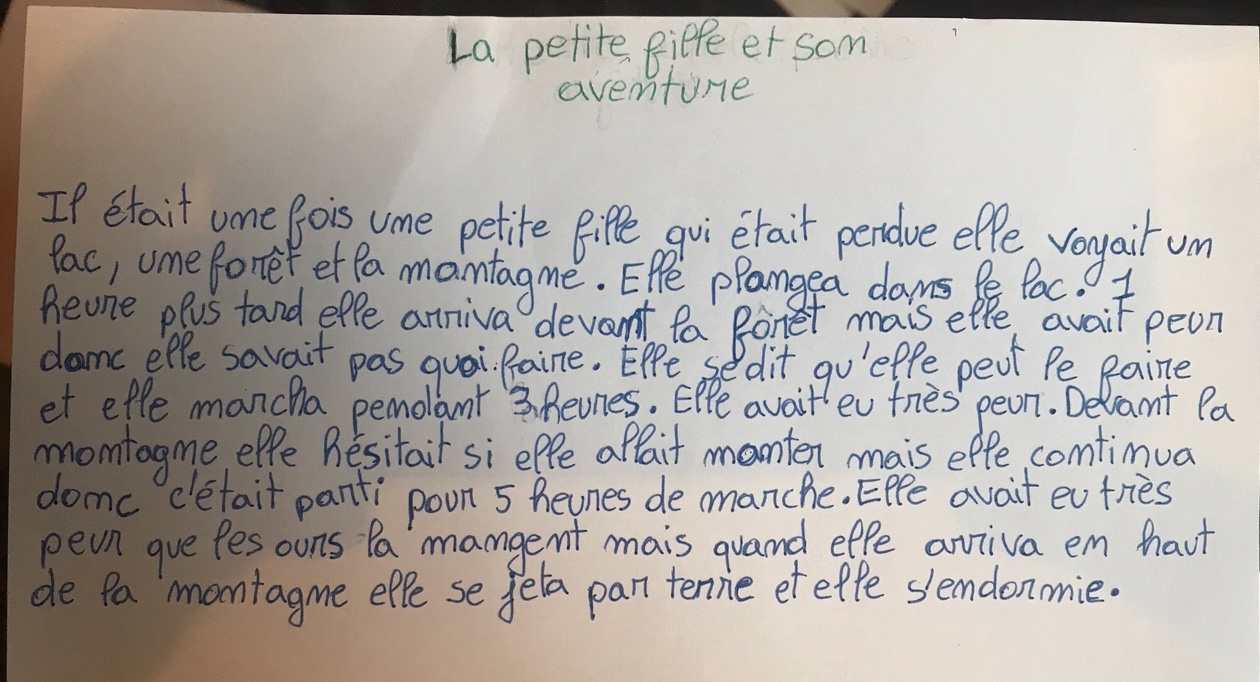 La petite fille et son
aventure
Il était une fois une petite fille qui était perdue elle voyait un
lac, une forêt et la montagne. Elle plongea dans le lac. 1
heure plus tard elle arriva devant la forêt mais elle avait peur
donc elle savait pas quoi faire. Elle se dit qu'elle peut le faire
et elle marcha pendant 3 heures. Elle avait eu très peur. Devant la
montagne elle hésitait si elle allait monter mais elle continua
donc c'était parti pour 5 heures de marche. Elle avait eu très
peur que les ours la mangent mais quand elle arriva en haut
de la montagne elle se jeta par terre et elle s'endormie.